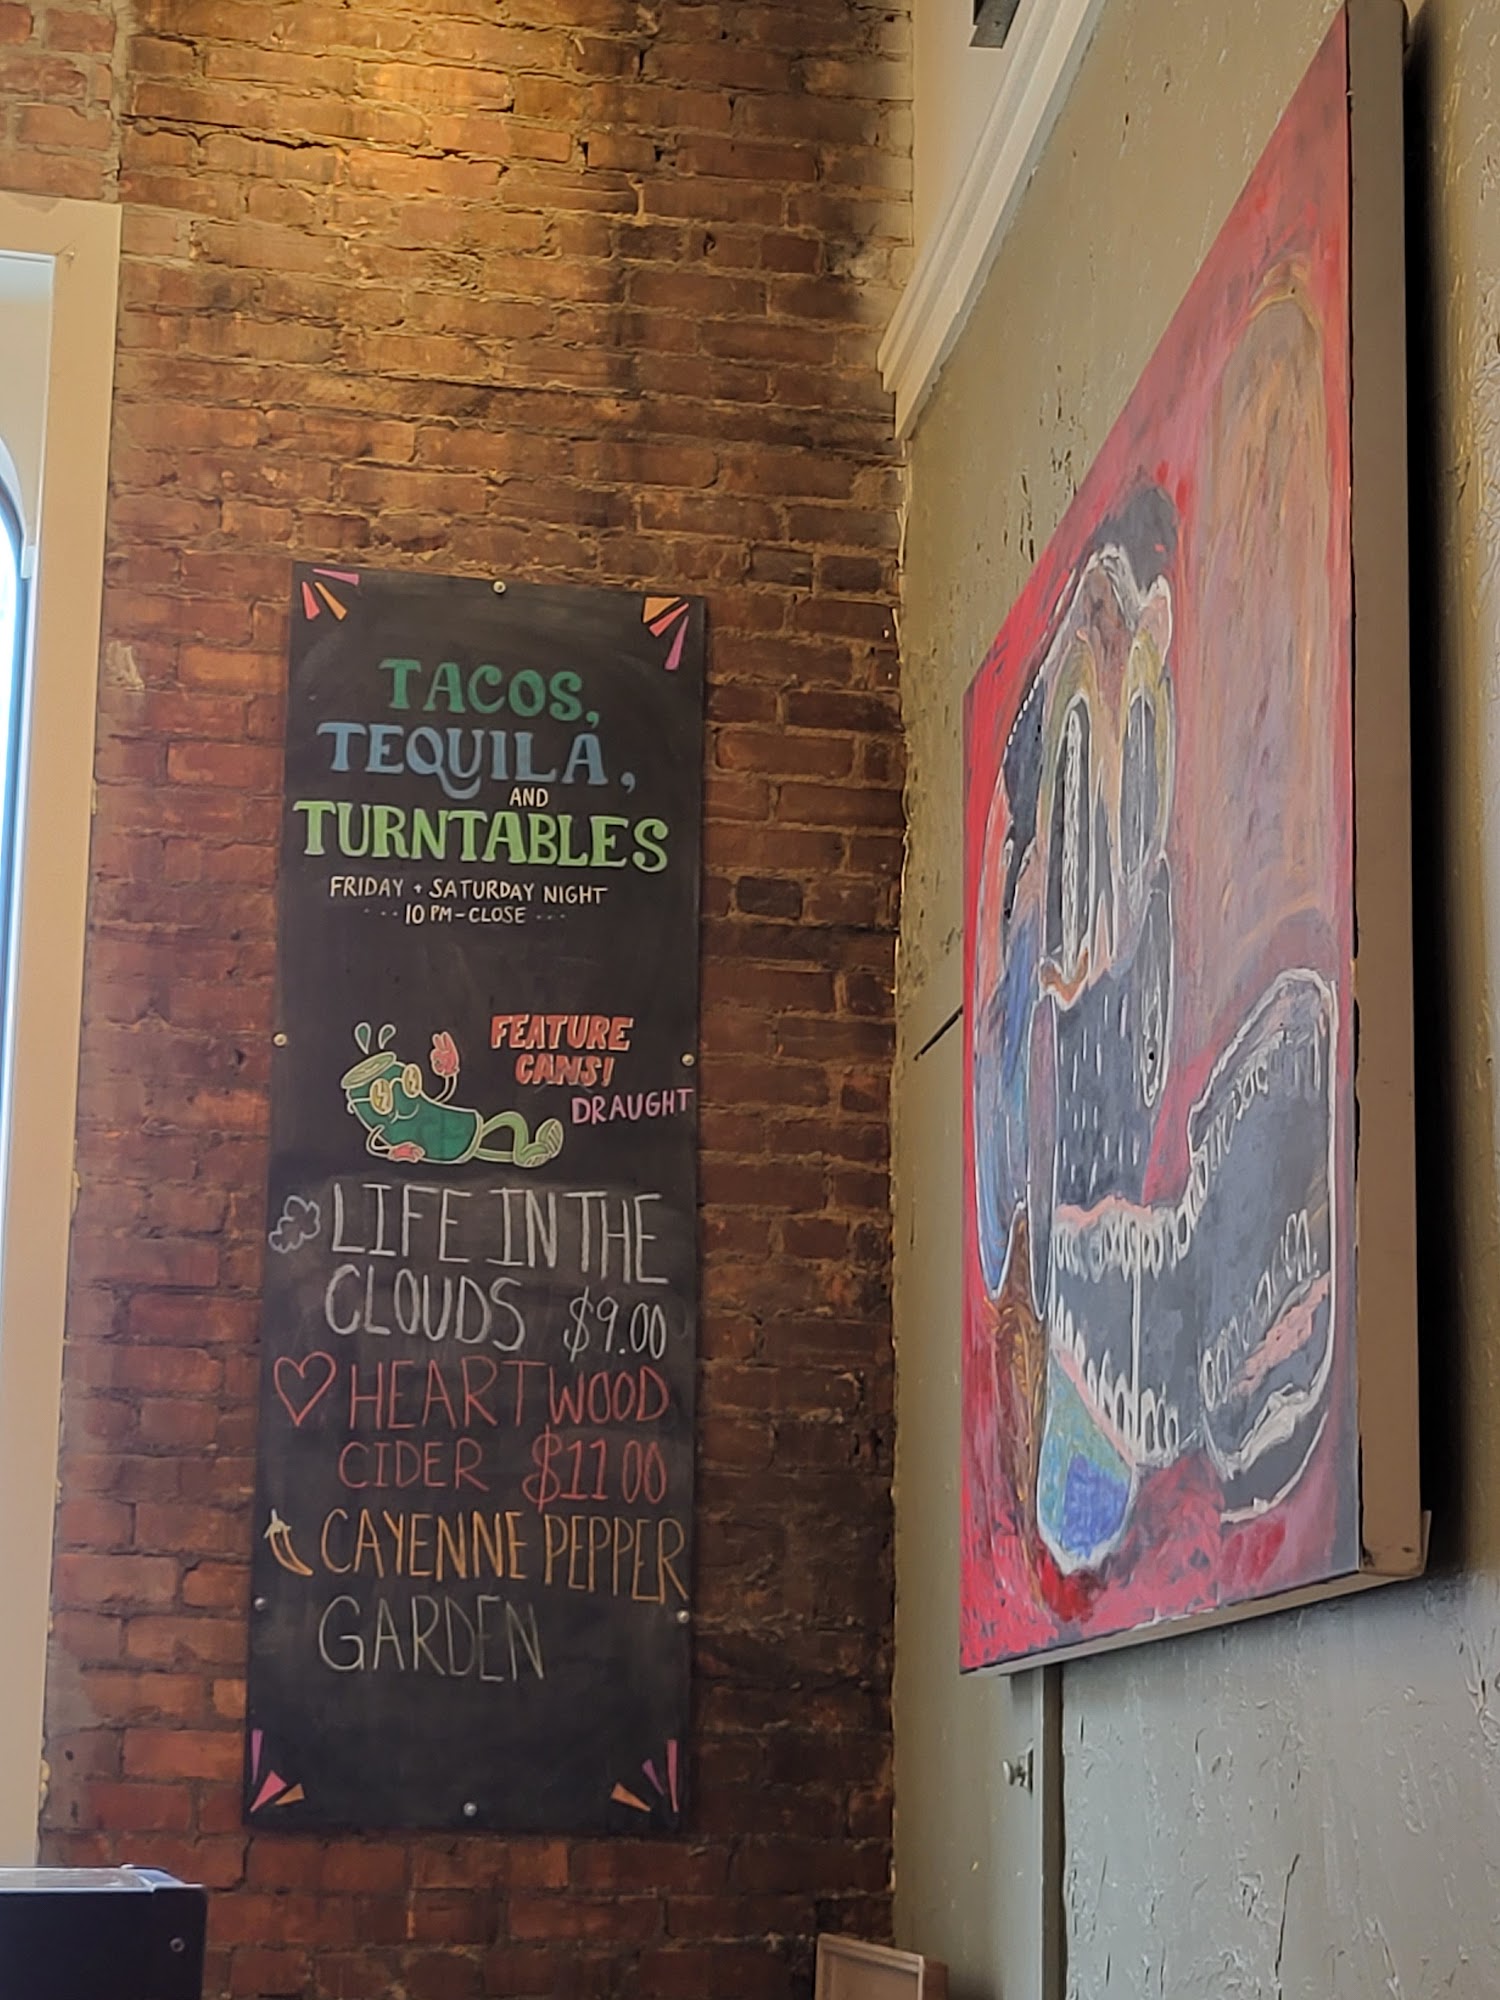 TACOS,
TEQUILA,
AND
TURNTABLES
FRIDAY + SATURDAY NIGHT
--- 10 PM - CLOSE ---
FEATURE
CANS!
DRAUGHT
LIFE IN THE
CLOUDS $9.00
HEARTWOOD
CIDER $11.00
CAYENNE PEPPER
GARDEN